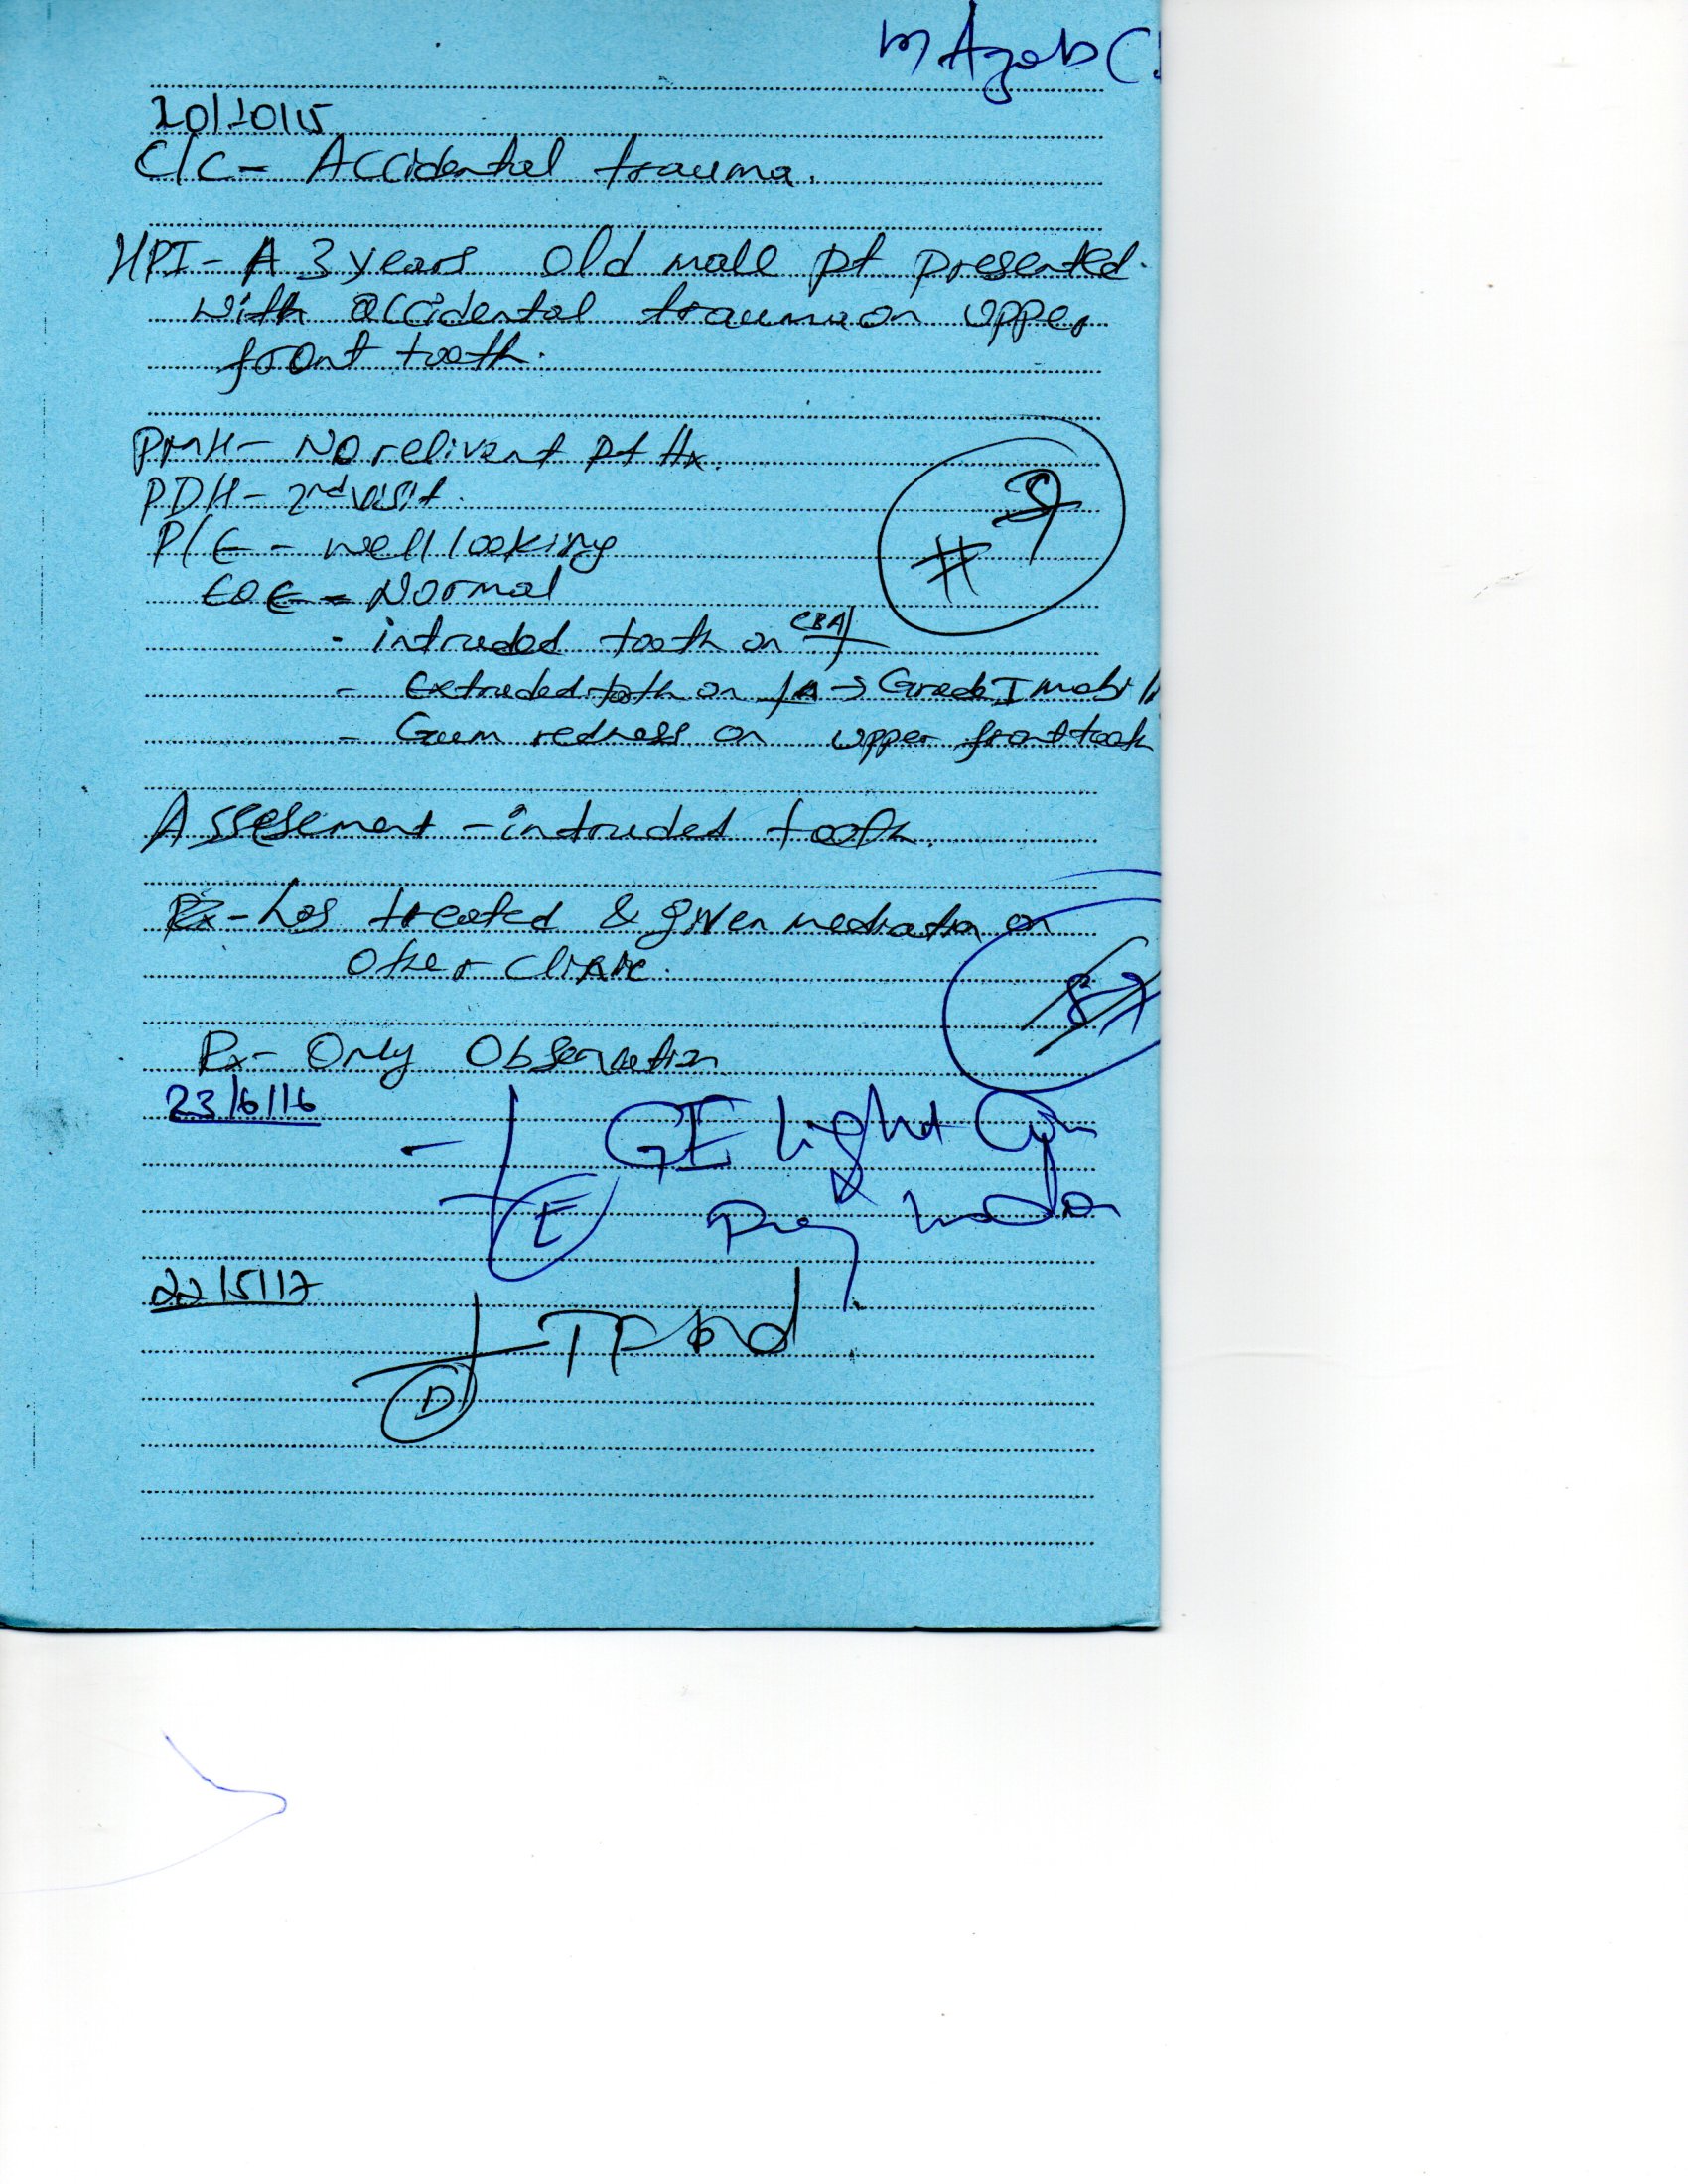 m Azab C
20/10/15
C/C- Accidental trauma.
HPI- A 3 years old male pt presented.
with accidental trauma on upper
front tooth.
PMH- No relivant pt Hx.
PDH- 2nd visit.
P/E- well looking
EOE- Normal
- intruded tooth on CBA|
- Extruded tooth on /A → Grade I mobi
- Gum redness on upper front tooth
#
Assesement - intruded tooth.
Rx- has treated & given medication on
other clinic.
87
Rx- Only Observation
23/6/16
- GI Light
E
22/5/17
D